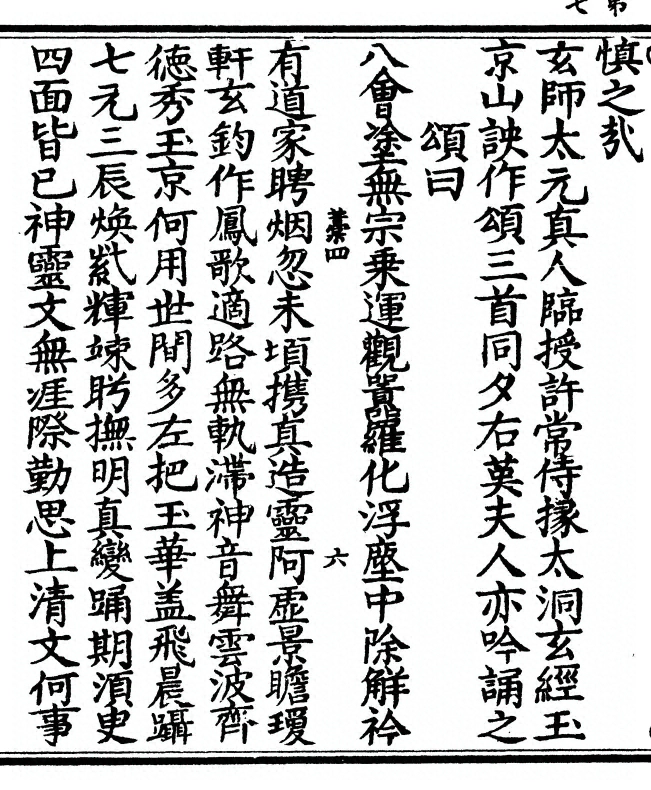 慎之哉
玄師太元真人臨授許常侍掾太洞玄經玉
京山訣作頌三首同夕右英夫人亦吟誦之
頌曰
八會塗無宗乘運觀囂羅化浮塵中除解衿
六
有道家聘烟忽未頃携真造靈阿虛景瞻瓊
軒玄鈞作鳳歌適路無軌滯神音舞雲波齊
德秀玉京何用世間多左把玉華盖飛晨躡
七元三辰煥紫輝竦眄撫明真變踊期須臾
四面皆已神靈文無涯際勤思上清文何事